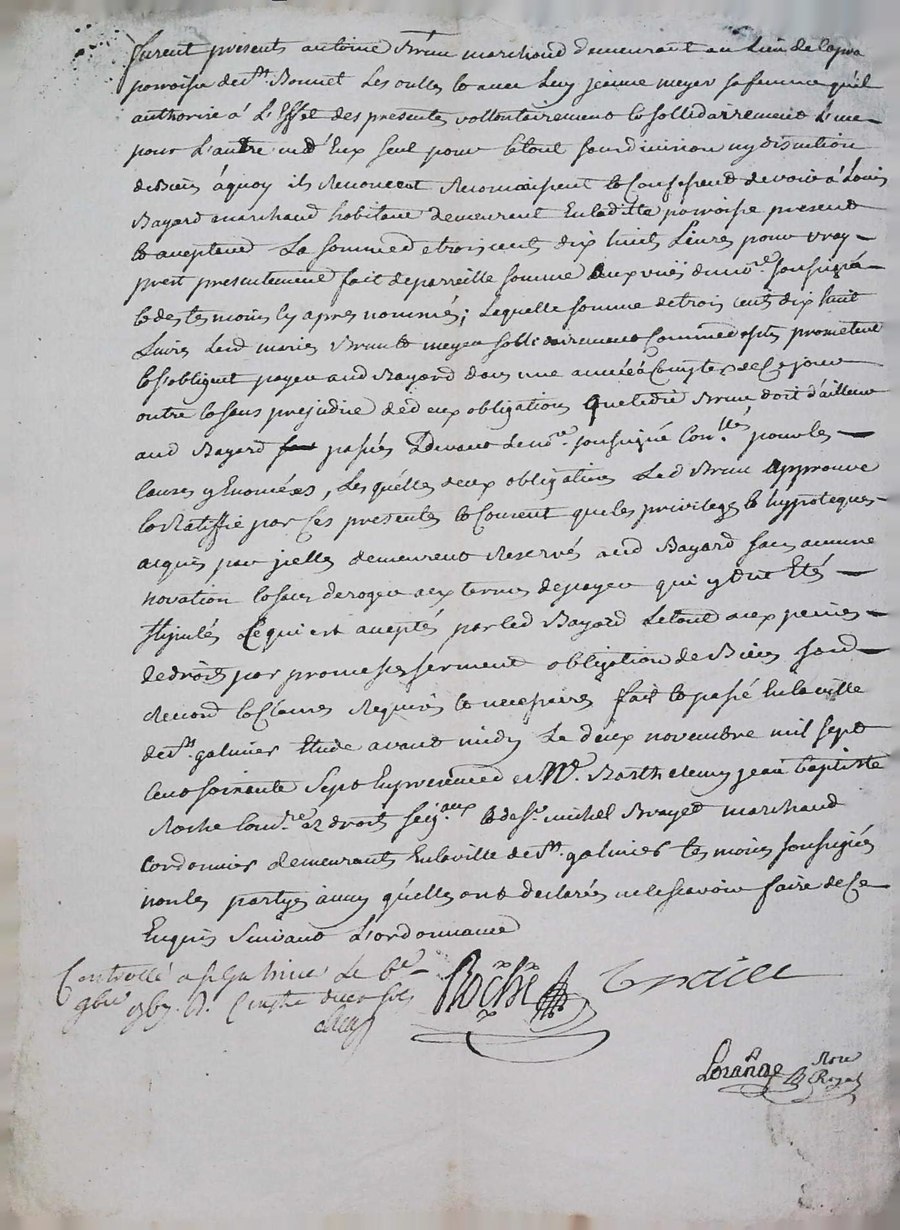 furent presents antoine Brun marchand demeurant au Lieu de
parroisse de st. Bonnet Les oulles & avec Luy jeanne meyer sa femme qu'il
authorise á L'Effet des presentes vollontairement & sollidairrement L'un
pour L'autre un d'Eux seul pour le tout sans division ny discution
de Biens áquoy ils Renoncent Reconnoissent & Confessent devoir á Louis
Bayard marchand habitant demeurent En laditte parroisse present
& aceptend La somme de trois cent dix huit Livres pour vray
prest presentement fait de parreille somme aux vües du nore. soussigné
& des tesmoins cy apres nommés; Laquelle somme de trois cent dix huit
Livres Lesd maries Brun & meyer sollidairement Comme dessus promettent
& s'obligent payer aud Bayard dans une année á Compter de Ce jour
outre & sans prejudice de deux obligations que ledit Brun doit d'ailleur
aud Bayard passées Pdevant Le nore. soussigné Conllés pour les
Causes y Enoncées, Les quélles deux obligations Led Brun approuve
& Ratiffie par Ces presentes & Consent que les privileges & hypoteques
acquis par jcelles demeurent Reservés aud Bayard sans aucune
novation & sans deroger aux termes de payer qui y ont Etés
stipulés Ce qui est aceptés par led Bayard Le tout aux peines
de droit par promesses serment obligation de Biens
Renond & Clauses Requises & necessaires fait & passé En la ville
de st. galmier Etude avant midy Le deux novembre mil sept
Cent soixante sept En presence de Mr. Barthelemy jean baptiste
Roche Comre. es droits seigaux & de sr. michel Brayet marchand
Cordonnier demeurants En la ville de st. galmier tesmoins soussignés
non les partyes aincy qu'elles ont declarées ne le scavoir faire de Ce
Enquis Suivant L'ordonnance
Controllé a st Galmier Le 6e
9bre 1767. R.
Roche
Lorange Nore
Royal